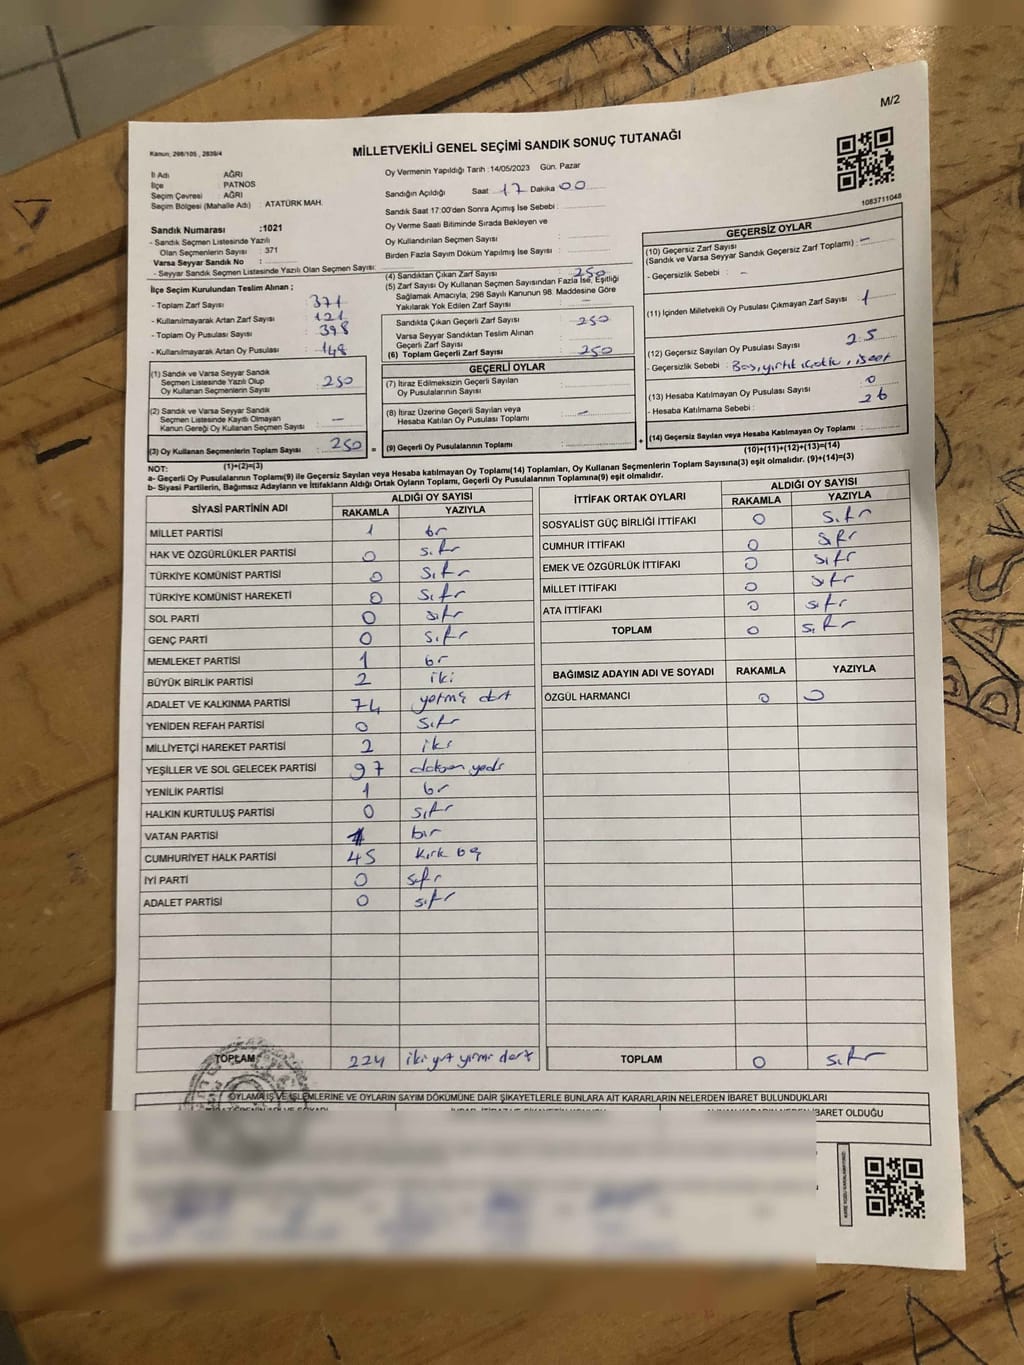 M/2
Kanun; 298/105 , 2839/4
MİLLETVEKİLİ GENEL SEÇİMİ SANDIK SONUÇ TUTANAĞI
İl Adı : AĞRI
İlçe : PATNOS
Seçim Çevresi : AĞRI
Seçim Bölgesi (Mahalle Adı) : ATATÜRK MAH.
Oy Vermenin Yapıldığı Tarih :14/05/2023 Gün. Pazar
Sandığın Açıldığı Saat 17 Dakika 00
Sandık Saat 17:00'den Sonra Açımış İse Sebebi :
Oy Verme Saati Bitiminde Sırada Bekleyen ve
Oy Kullandırılan Seçmen Sayısı :
Birden Fazla Sayım Döküm Yapılmış İse Sayısı :
1083711048
Sandık Numarası :1021
- Sandık Seçmen Listesinde Yazılı
Olan Seçmenlerin Sayısı : 371
Varsa Seyyar Sandık No :
- Seyyar Sandık Seçmen Listesinde Yazılı Olan Seçmen Sayısı:
İlçe Seçim Kurulundan Teslim Alınan ;
- Toplam Zarf Sayısı : 371
- Kullanılmayarak Artan Zarf Sayısı : 121
- Toplam Oy Pusulası Sayısı : 398
- Kullanılmayarak Artan Oy Pusulası : 148
(1) Sandık ve Varsa Seyyar Sandık
Seçmen Listesinde Yazılı Olup
Oy Kullanan Seçmenlerin Sayısı : 250
(2) Sandık ve Varsa Seyyar Sandık
Seçmen Listesinde Kayıtlı Olmayan
Kanun Gereği Oy Kullanan Seçmen Sayısı : —
(3) Oy Kullanan Seçmenlerin Toplam Sayısı : 250 =
(1)+(2)=(3)
(4) Sandıktan Çıkan Zarf Sayısı : 250
(5) Zarf Sayısı Oy Kullanan Seçmen Sayısından Fazla İse, Eşitliği
Sağlamak Amacıyla, 298 Sayılı Kanunun 98. Maddesine Göre
Yakılarak Yok Edilen Zarf Sayısı : —
Sandıkta Çıkan Geçerli Zarf Sayısı : 250
Varsa Seyyar Sandıktan Teslim Alınan
Geçerli Zarf Sayısı :
(6) Toplam Geçerli Zarf Sayısı : 250
GEÇERLİ OYLAR
(7) İtiraz Edilmeksizin Geçerli Sayılan
Oy Pusulalarının Sayısı :
(8) İtiraz Üzerine Geçerli Sayılan veya
Hesaba Katılan Oy Pusulası Toplamı : —
(9) Geçerli Oy Pusulalarının Toplamı : +
GEÇERSİZ OYLAR
(10) Geçersiz Zarf Sayısı
(Sandık ve Varsa Seyyar Sandık Geçersiz Zarf Toplamı) : —
- Geçersizlik Sebebi : -
(11) İçinden Milletvekili Oy Pusulası Çıkmayan Zarf Sayısı 1
(12) Geçersiz Sayılan Oy Pusulası Sayısı 25
- Geçersizlik Sebebi :
(13) Hesaba Katılmayan Oy Pusulası Sayısı 0
- Hesaba Katılmama Sebebi : 26
(14) Geçersiz Sayılan veya Hesaba Katılmayan Oy Toplamı :
(10)+(11)+(12)+(13)=(14)
NOT:
a- Geçerli Oy Pusulalarının Toplamı(9) ile Geçersiz Sayılan veya Hesaba katılmayan Oy Toplamı(14) Toplamları, Oy Kullanan Seçmenlerin Toplam Sayısına(3) eşit olmalıdır. (9)+(14)=(3)
b- Siyasi Partilerin, Bağımsız Adayların ve İttifakların Aldığı Ortak Oyların Toplamı, Geçerli Oy Pusulalarının Toplamına(9) eşit olmalıdır.
SİYASİ PARTİNİN ADI ALDIĞI OY SAYISI
RAKAMLA YAZIYLA
MİLLET PARTİSİ 1 bir
HAK VE ÖZGÜRLÜKLER PARTİSİ 0 sıfır
TÜRKİYE KOMÜNİST PARTİSİ 0 sıfır
TÜRKİYE KOMÜNİST HAREKETİ 0 sıfır
SOL PARTİ 0 sıfır
GENÇ PARTİ 0 sıfır
MEMLEKET PARTİSİ 1 bir
BÜYÜK BİRLİK PARTİSİ 2 iki
ADALET VE KALKINMA PARTİSİ 74 yetmiş dört
YENİDEN REFAH PARTİSİ 0 sıfır
MİLLİYETÇİ HAREKET PARTİSİ 2 iki
YEŞİLLER VE SOL GELECEK PARTİSİ 97 doksan yedi
YENİLİK PARTİSİ 1 bir
HALKIN KURTULUŞ PARTİSİ 0 sıfır
VATAN PARTİSİ 1 bir
CUMHURİYET HALK PARTİSİ 45 kırk beş
İYİ PARTİ 0 sıfır
ADALET PARTİSİ 0 sıfır
TOPLAM 224 iki yüz yirmi dört
İTTİFAK ORTAK OYLARI ALDIĞI OY SAYISI
RAKAMLA YAZIYLA
SOSYALİST GÜÇ BİRLİĞİ İTTİFAKI 0 sıfır
CUMHUR İTTİFAKI 0 sıfır
EMEK VE ÖZGÜRLÜK İTTİFAKI 0 sıfır
MİLLET İTTİFAKI 0 sıfır
ATA İTTİFAKI 0 sıfır
TOPLAM 0 sıfır
BAĞIMSIZ ADAYIN ADI VE SOYADI RAKAMLA YAZIYLA
ÖZGÜL HARMANCI 0 0
TOPLAM 0 sıfır
OYLAMA İŞ VE İŞLEMLERİNE VE OYLARIN SAYIM DÖKÜMÜNE DAİR ŞİKAYETLERLE BUNLARA AİT KARARLARIN NELERDEN İBARET BULUNDUKLARI
İBARET OLDUĞU